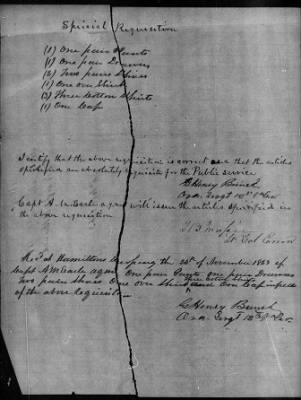 Special Requisition
(1) One pair Pants
(1) One pair Drawers
(2) Two pairs Shoes
(1) One over Shirt
(3) Three Cotton Shirts
(1) One Cap
I certify that the above requisition is correct and that the articles
specified are absolutely requisite for the Public service
G Henry Bunch
Ord. Sergt
Capt A. M. Earle a.q.m will issue the articles specified in
the above requisition
Lt Col
Rec'd at Hamiltons Crossing the of November 1863 of
Capt A M Earle aqm One pair Pants, one pair Drawers
Two pairs Shoes One over Shirt and One Cap in full
of the above Requisition
G Henry Bunch
Ord. Sergt